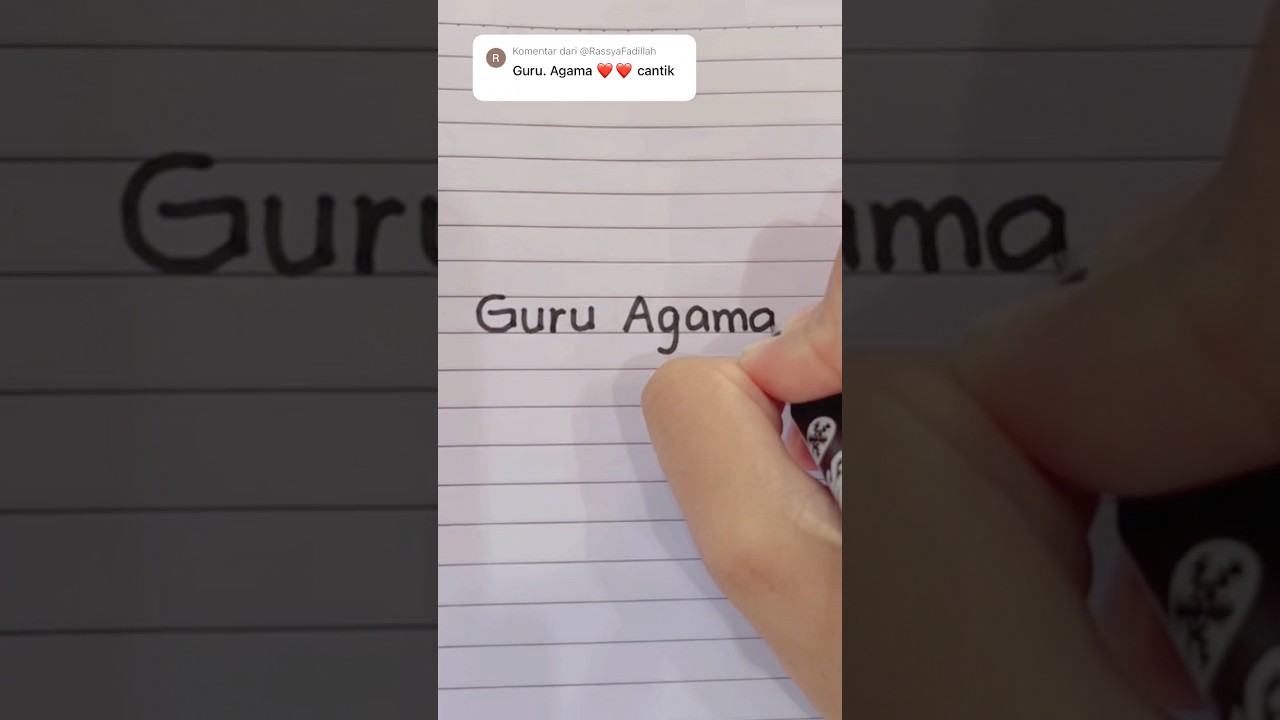 R
Komentar dari @RassyaFadillah
Guru. Agama ❤️❤️ cantik
Guru Agama